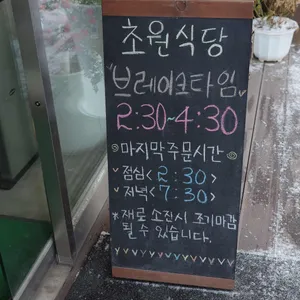 초원식당
"브레이크타임"
2:30~4:30
마지막주문시간
점심<2:30>
저녁<7:30>
*재료 소진시 조기마감
될 수 있습니다.